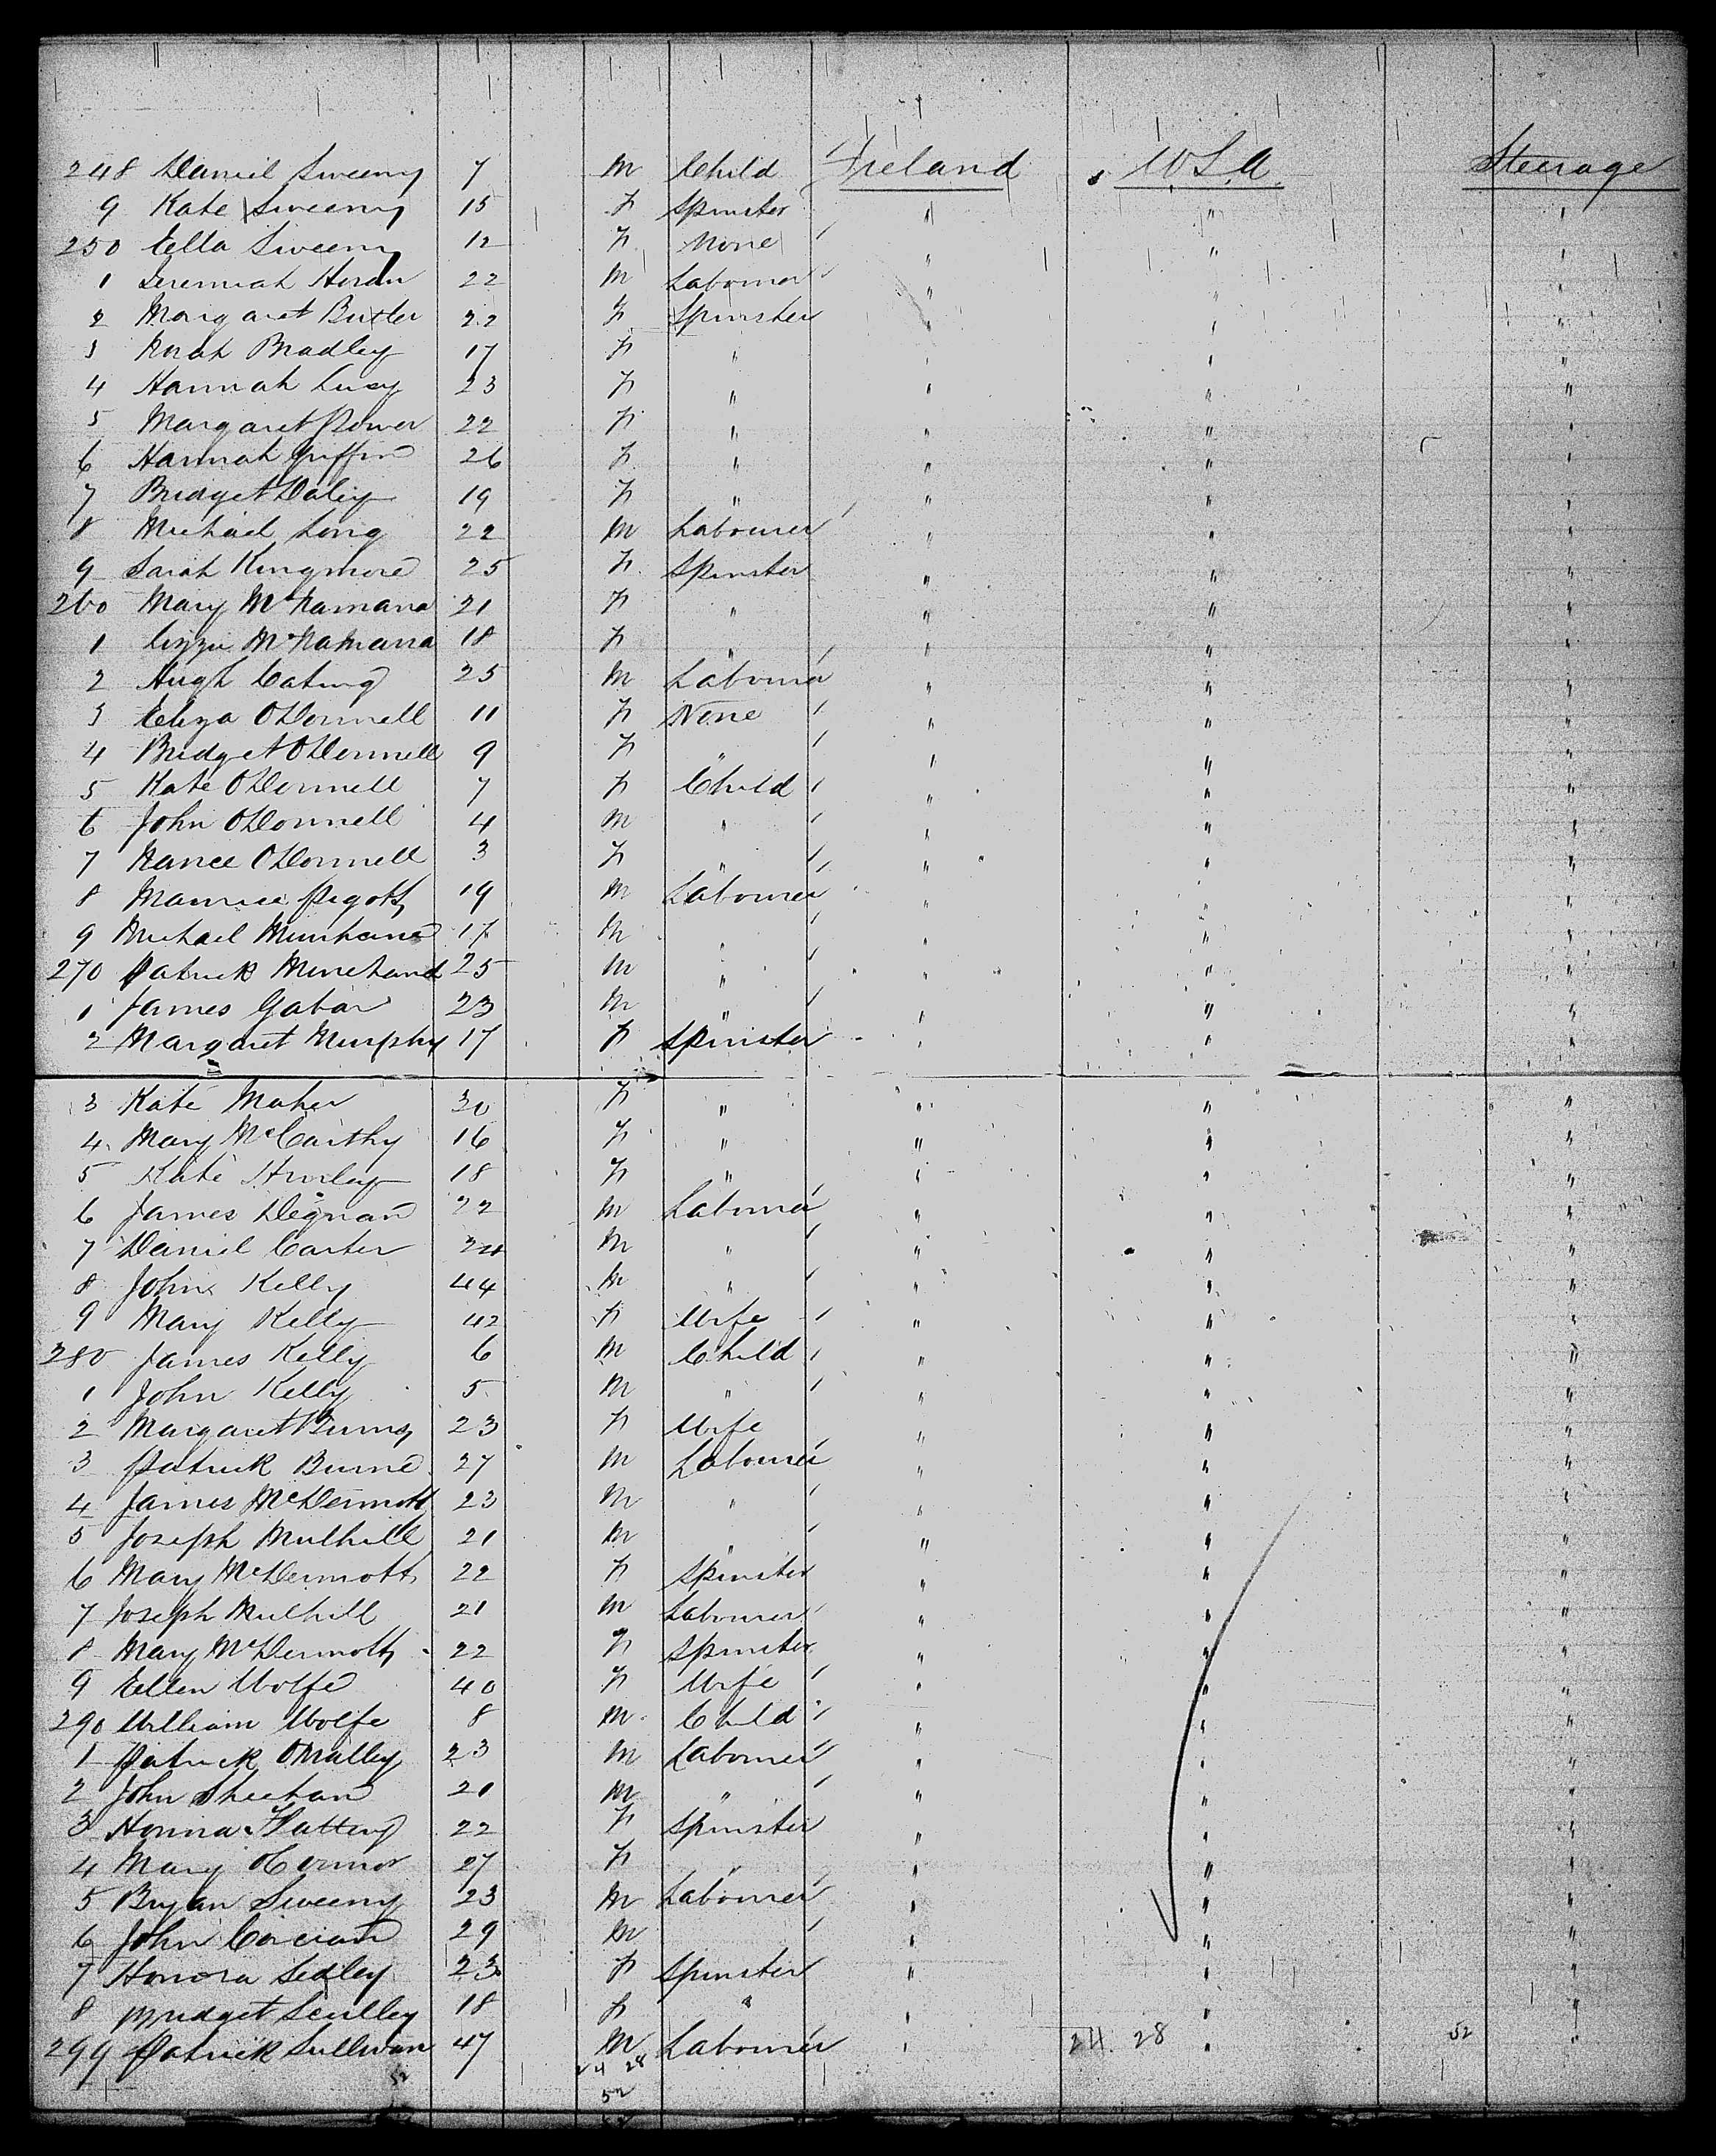 248 Daniel Sweeny 7 M Child Ireland U.S.A. Steerage
9 Kate Sweeny 15 F Spinster " " "
250 Ella Sweeny 12 F None " " "
1 Jeremiah 22 M Labourer " " "
2 Margaret Butler 22 F Spinster " " "
3 Norah Bradley 17 F " " " "
4 Hannah Lucy 23 F " " " "
5 Margaret Power 22 F " " " "
6 Hannah Griffin 26 F " " " "
7 Bridget Daley 19 F " " " "
8 Michael Long 22 M Labourer " " "
9 Sarah Kingmore 25 F Spinster " " "
260 Mary McNamara 21 F " " " "
1 Lizzie McNamara 18 F " " " "
2 Hugh 25 M Labourer " " "
3 Eliza O'Donnell 11 F None " " "
4 Bridget O'Donnell 9 F " " " "
5 Kate O'Donnell 7 F Child " " "
6 John O'Donnell 4 M " " " "
7 Nance O'Donnell 3 F " " " "
8 Maurice Pigott 19 M Labourer " " "
9 Michael 17 M " " " "
270 Patrick 25 M " " " "
1 James 23 M " " " "
2 Margaret Murphy 17 F Spinster " " "
3 Kate Maher 30 F " " " "
4 Mary McCarthy 16 F " " " "
5 Kate Hurley 18 F " " " "
6 James Degnan 22 M Labourer " " "
7 Daniel Carter M " " " "
8 John Kelly 44 M " " " "
9 Mary Kelly 42 F Wife " " "
280 James Kelly 6 M Child " " "
1 John Kelly 5 M " " " "
2 Margaret Burns 23 F Wife " " "
3 Patrick Burns 27 M Labourer " " "
4 James McDermott 23 M " " " "
5 Joseph Mulhill 21 M " " " "
6 Mary McDermott 22 F Spinster " " "
7 Joseph Mulhill 21 M Labourer " " "
8 Mary McDermott 22 F Spinster " " "
9 Ellen Wolfe 40 F Wife " " "
290 William Wolfe 8 M Child " " "
1 Patrick OMalley 23 M Labourer " " "
2 John Sheehan 20 M " " " "
3 Honora 22 F Spinster " " "
4 Mary OConnor 27 F " " " "
5 Bryan Sweeny 23 M Labourer " " "
6 John Corcoran 29 M " " "
7 Honora Sedley 23 F Spinster " " "
8 Bridget Sculley 18 F " " " "
299 Patrick Sullivan 47 M Labourer " " "
52 24 28 24 28 52
52